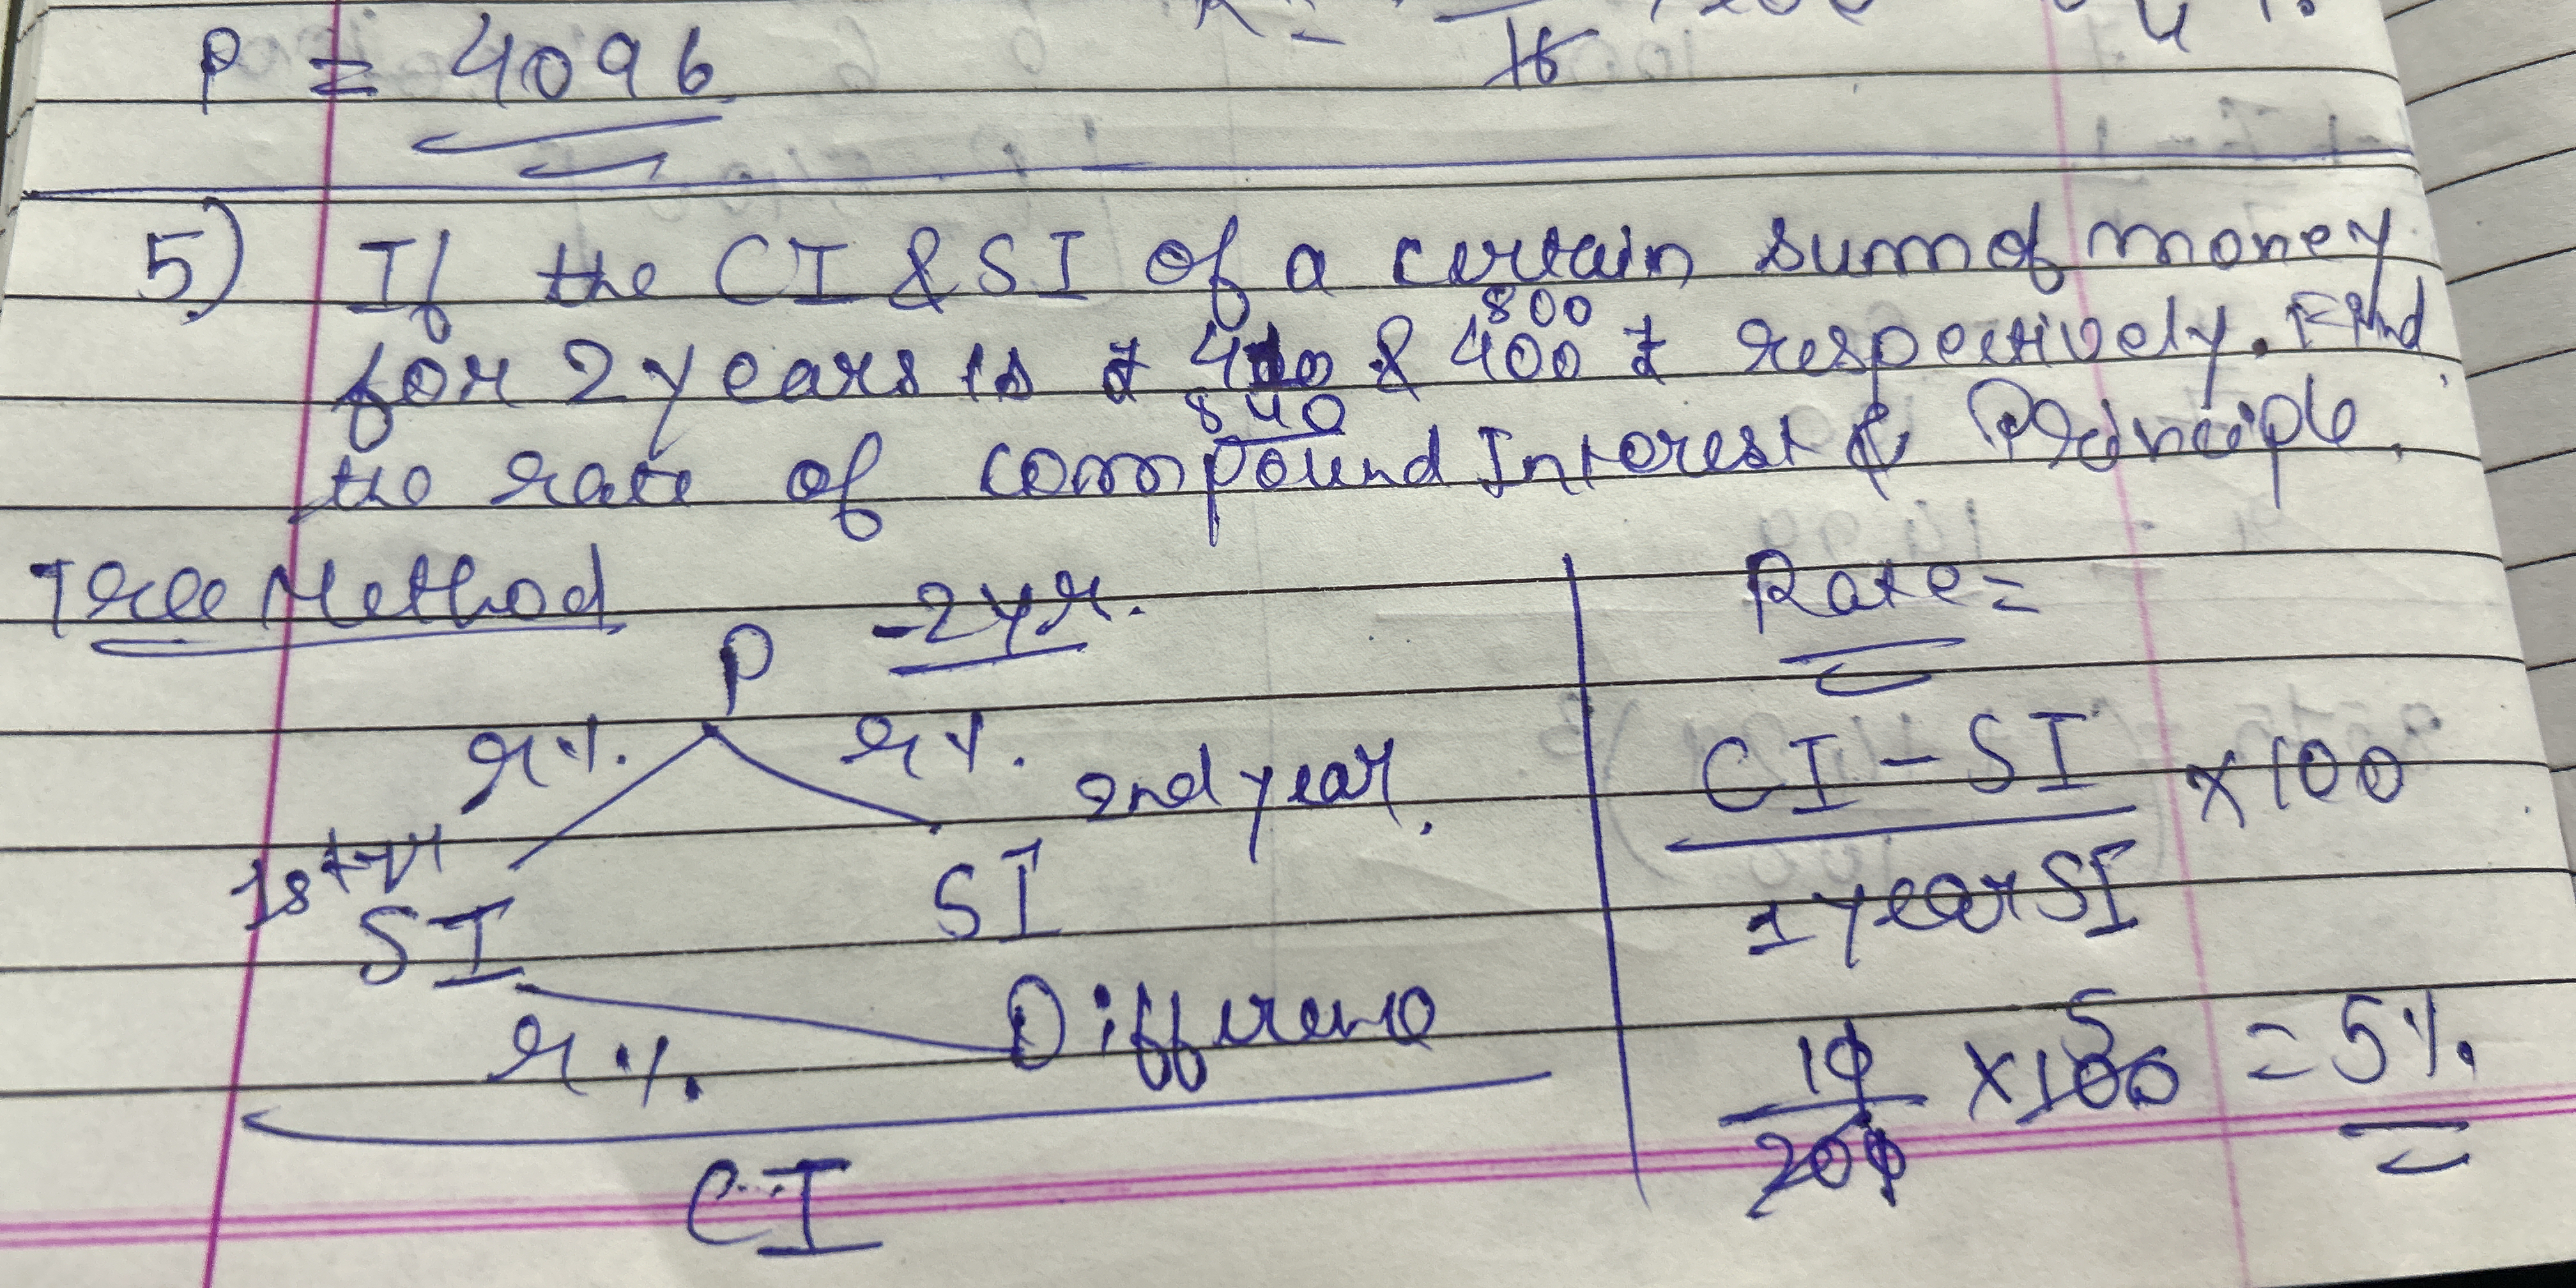 P = 4096
16
5) If the CI & SI of a certain sum of money
800
for 2 years is ₹ 410 & 400 ₹ respectively. Find
840
the rate of compound Interest & Principle.
Tree Method
P - 2 yr.
r%. r%. 2nd year.
1st yr
SI SI
r%. Differenc
CI
Rate =
CI - SI × 100
1 year SI
5
10 × 100 = 5%.
200